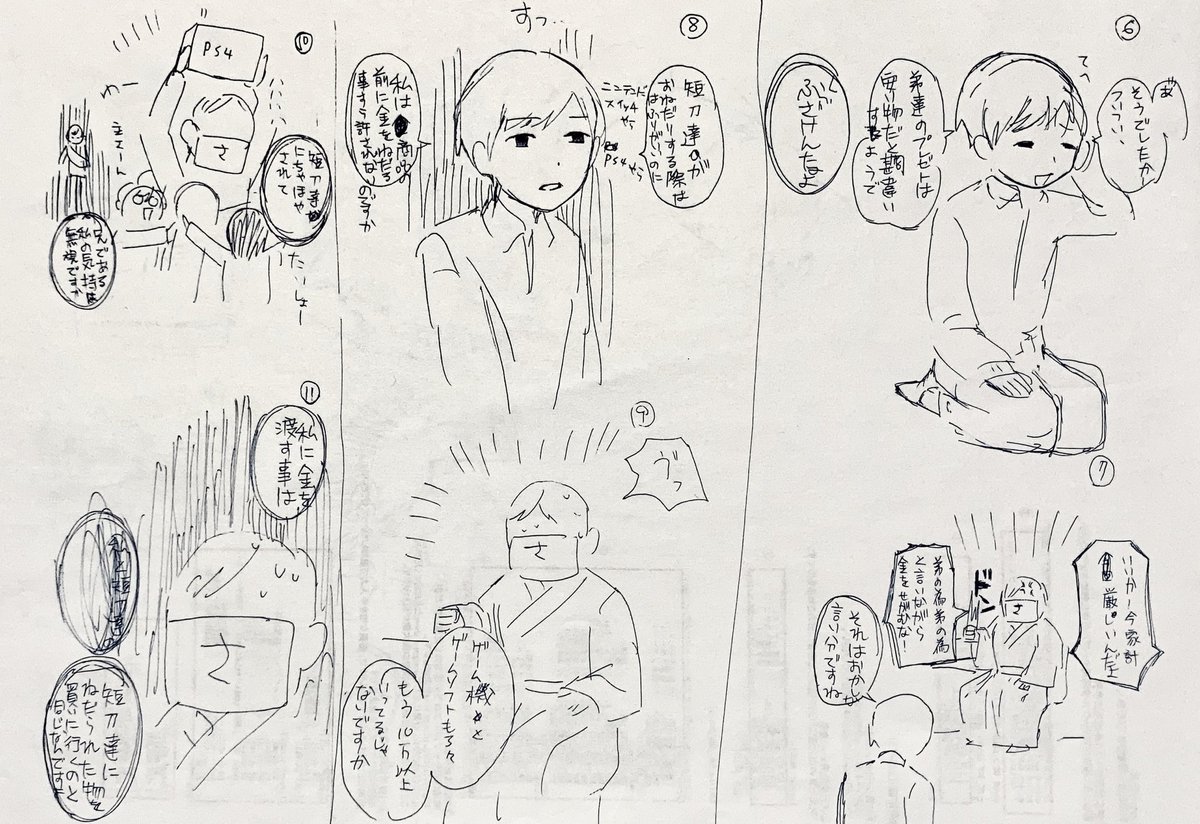 ⑥
あ
そうでしたか〜
ついつい
てへ
弟達のプレゼントは
安い物だと勘違い
するようで
ふざけんなよ
⑦
いいかー今家計
厳しいんだ
ドン
さ
弟の為弟の為
と言いながら
金をせがむな!
それはおかしな
言い分ですね
⑧
すっ…
短刀達が
おねだりする際は
ニンテンドー
スイッチやら
PS4やら
私は商品の
前に金をねだる
事すら許されないのですか
⑨
ゔっ
さ
ゲーム機と
ゲームソフトもろ々
もう10万以上
いってるじゃ
ないですか
⑩
PS4
さ
わー
主さーん
たいしょー
短刀達が
にちやほや
されて
兄である
私の気持は
無視ですか
⑪
私に金を
渡す事は
さ
短刀達に
ねだられた物を
買いに行くのと
同じなんですよ